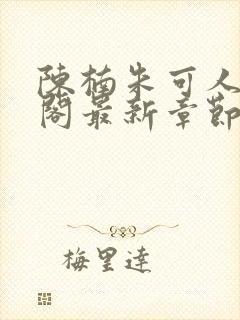 陳楠朱可人
閣最新章節
梅里達